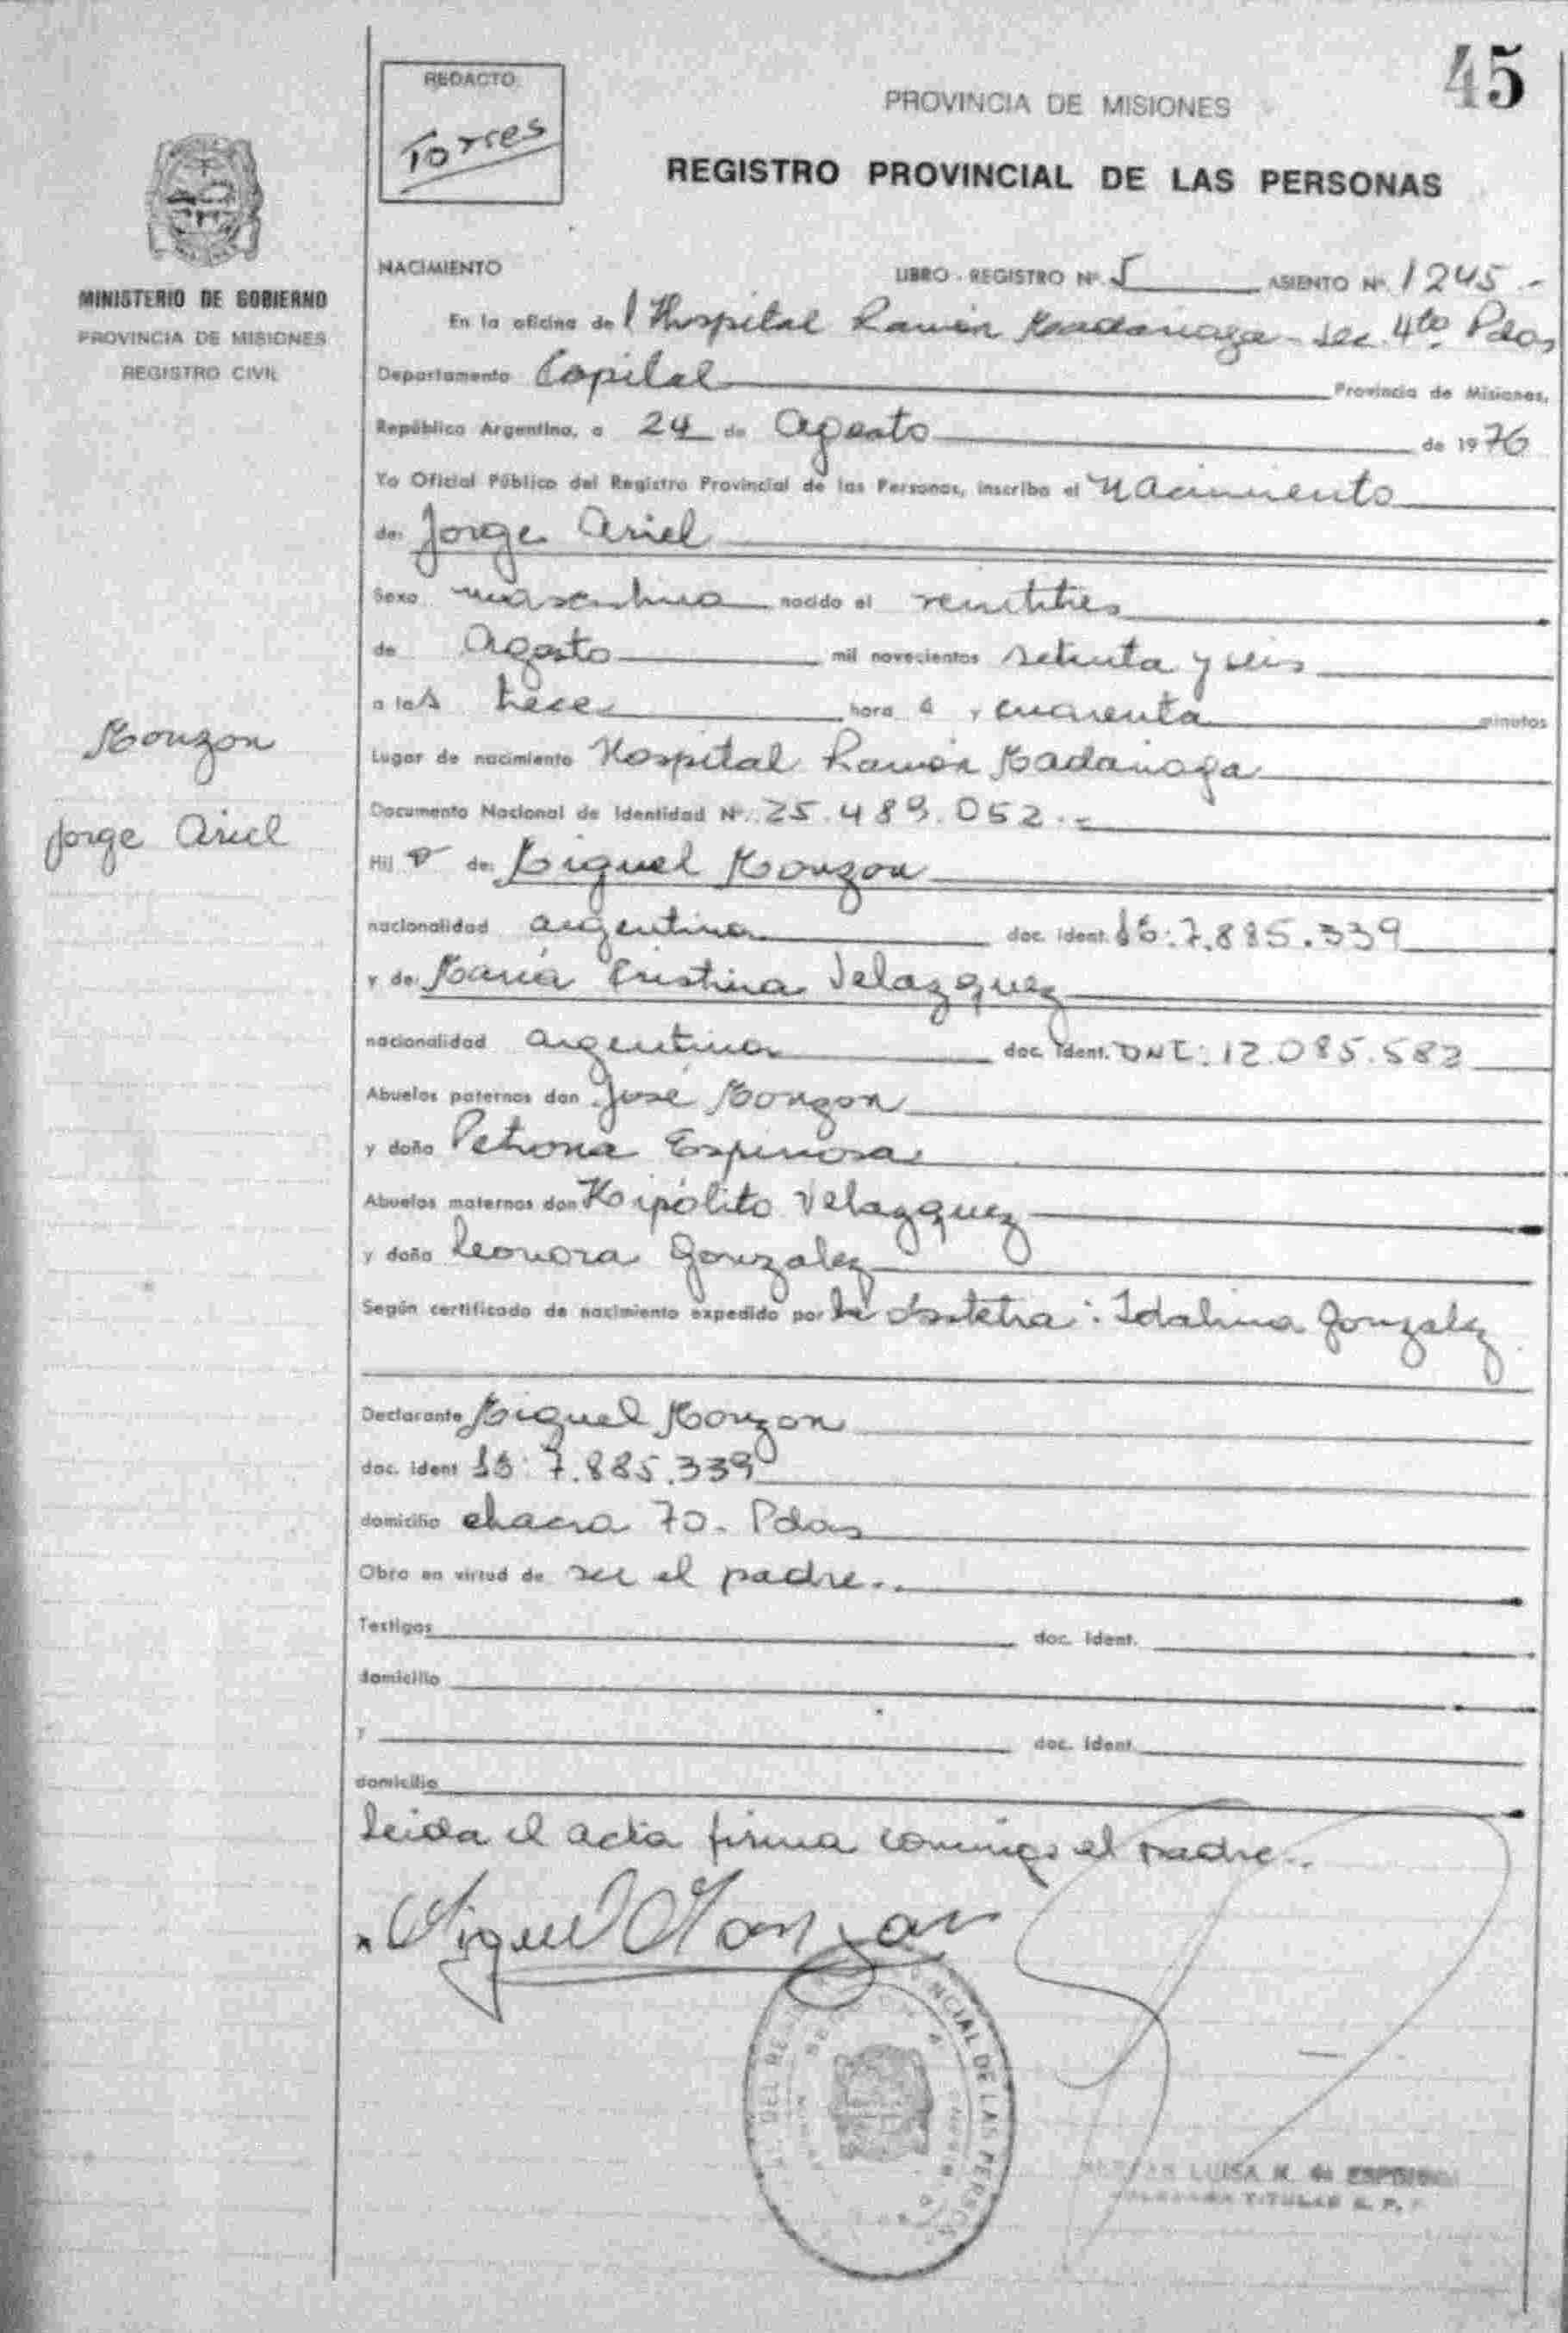 45
REDACTO
Torres
PROVINCIA DE MISIONES
REGISTRO PROVINCIAL DE LAS PERSONAS
MINISTERIO DE GOBIERNO
PROVINCIA DE MISIONES
REGISTRO CIVIL
NACIMIENTO LIBRO - REGISTRO Nº 5 ASIENTO Nº 1245.-
En la oficina del Hospital Ramón Madariaga - Sec. 4ta Pdas
Departamento Capital Provincia de Misiones,
República Argentina, a 24 de Agosto de 1976
Yo Oficial Público del Registro Provincial de las Personas, inscribo el Nacimiento
de: Jorge Ariel
Sexo masculino nacido el veintitrés
de Agosto mil novecientos setenta y seis
a las trece hora s y cuarenta minutos
Lugar de nacimiento Hospital Ramón Madariaga
Monzon
Jorge Ariel
Documento Nacional de Identidad Nº 25.489.052.-
Hijo de: Miguel Monzon
nacionalidad argentina doc. ident. 7.885.339
y de: María Cristina Velazquez
nacionalidad argentina doc. ident. DNI: 12.085.582
Abuelos paternos don José Monzon
y doña Petrona Espinosa
Abuelos maternos don Hipólito Velazquez
y doña Leonora Gonzalez
Según certificado de nacimiento expedido por la obstetra: Idalina Gonzalez
Declarante Miguel Monzon
doc. ident 7.885.339
domicilio chacra 70. Pdas
Obra en virtud de ser el padre..
Testigos doc. ident.
domicilio
y doc. ident.
domicilio
Leida el acta firma conmigo el padre..
Miguel Monzon
DEL REG PROVINCIAL DE LAS PERSONAS
LUISA M. de ESPINOSA
TITULAR R. P. P.